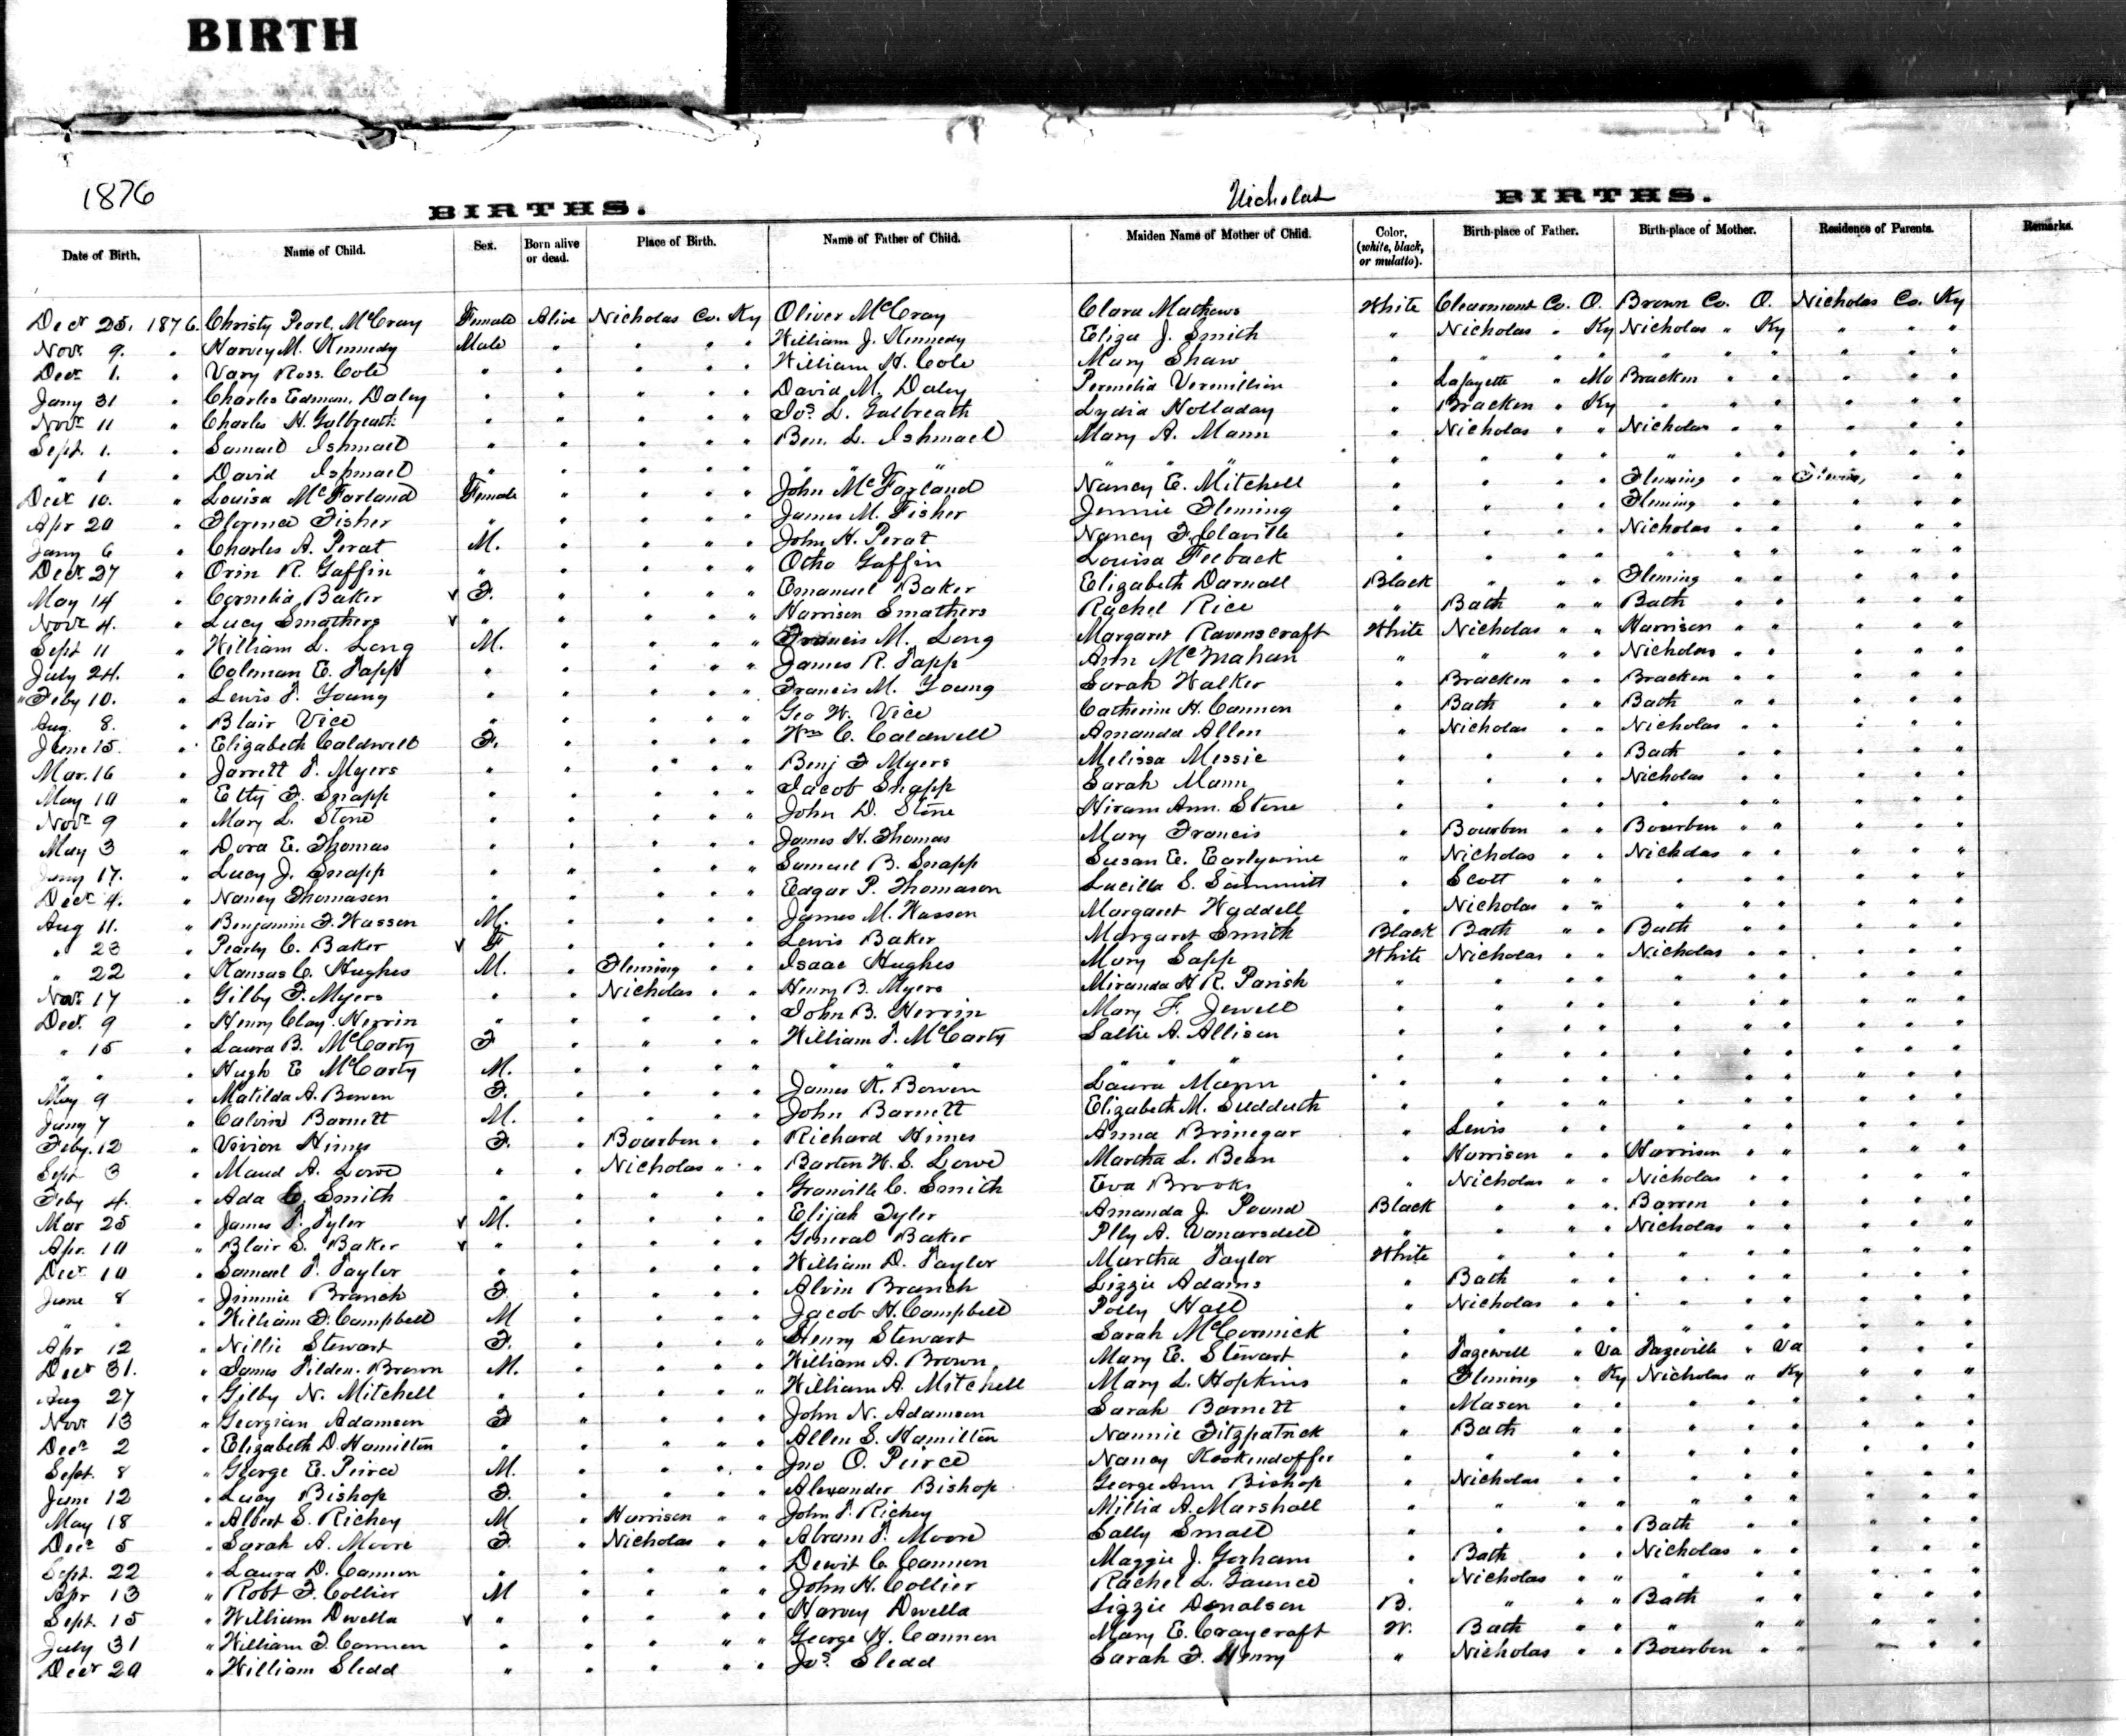 BIRTH
1876
BIRTHS. Nicholas BIRTHS.
Date of Birth. Name of Child. Sex. Born alive or dead. Place of Birth. Name of Father of Child. Maiden Name of Mother of Child. Color, (white, black, or mulatto). Birth-place of Father. Birth-place of Mother. Residence of Parents. Remarks.
Decr 25, 1876. Christy Pearl, McCray Female Alive Nicholas Co. Ky Oliver McCray Clara Mathews White Clearmont Co. O. Brown Co. O. Nicholas Co. Ky
Novr 9. " Harvey M. Kennedy Male " " " " William J. Kennedy Eliza J. Smith " Nicholas " Ky Nicholas " Ky " " "
Decr 1. " Vary Ross. Cole " " " " " William H. Cole Mary Shaw " " " " " " " " " "
Jany 31 " Charles Edman, Daley " " " " " David M. Daley Permelia Vermillion " Lafayette " Mo Bracken " " " " "
Novr 11 " Charles H. Galbreath " " " " " Jos. L. Galbreath Lydia Holladay " Bracken " Ky " " " " " "
Sept. 1. " Samuel Ishmael " " " " " Ben. L. Ishmael Mary A. Mann " Nicholas " " Nicholas " " " " "
" 1 " David Ishmael " " " " " " " " " " " " " " " " " " " " " "
Decr 10. " Louisa McFarland Female " " " " John McFarland Nancy E. Mitchell " " " " Fleming " " Fleming " "
Apr 20 " Florence Fisher " " " " " James M. Fisher Jennie Fleming " " " " Fleming " " " " "
Jany 6 " Charles A. Perat M. " " " " John H. Perat Nancy F. Claville " " " " Nicholas " " " " "
Decr 27 " Orin R. Gaffin " " " " " Otho Gaffin Louisa Feeback " " " " " " " " " "
May 14 " Cornelia Baker v F. " " " " Emanuel Baker Elizabeth Darnall Black " " " Fleming " " " " "
Novr 4. " Lucy Smathers v " " " " " Harrison Smathers Rachel Rice " Bath " " Bath " " " " "
Sept 11 " William L. Long M. " " " " Francis M. Long Margaret Ravenscraft White Nicholas " " Harrison " " " " "
July 24. " Coleman E. Tapp " " " " " James R. Tapp Ann McMahan " " " " Nicholas " " " " "
" Feby 10. " Lewis T. Young " " " " " Francis M. Young Sarah Walker " Bracken " " Bracken " " " " "
Aug. 8. " Blair Vice " " " " " Geo W. Vice Catherine H. Cannon " Bath " " Bath " " " " "
June 15. " Elizabeth Caldwell F. " " " " Wm C. Caldwell Amanda Allen " Nicholas " " Nicholas " " " " "
Mar. 16 " Jarrett T. Myers " " " " " Benj F Myers Melissa Messie " " " " Bath " " " " "
May 10 " Etty F. Snapp " " " " " Jacob Snapp Sarah Mann " " " " Nicholas " " " " "
Novr 9 " Mary L. Stone " " " " " John D. Stone Hiram Ann. Stone " " " " " " " " " "
May 3 " Dora E. Thomas " " " " " James H. Thomas Mary Francis " Bourbon " " Bourbon " " " " "
Jany 17. " Lucy J. Snapp " " " " " Samuel B. Snapp Susan E. Earlywine " Nicholas " " Nicholas " " " " "
Decr 4. " Nancy Thomason " " " " " Edgar P. Thomason Lucilla S. Sammitt " Scott " " " " " " " "
Aug 11. " Benjamin F. Wasson M. " " " " James M. Wasson Margaret Waddell " Nicholas " " " " " " " "
" 23 " Pearly C. Baker v F " " " " Lewis Baker Margaret Smith Black Bath " " Bath " " " " "
" 22 " Kansas C. Hughes M. " Fleming " " Isaac Hughes Mary Sapp White Nicholas " " Nicholas " " " " "
Novr 17 " Gilby F. Myers " " Nicholas " " Henry B. Myers Miranda H R. Parish " " " " " " " " " "
Decr. 9 " Henry Clay. Herrin " " " " " John B. Herrin Mary F. Jewell " " " " " " " " " "
" 15 " Laura B. McCarty F " " " " William T. McCarty Sallie A. Allison " " " " " " " " " "
" " " Hugh E McCarty M. " " " " " " " " " " " " " " " " " " " "
May 9 " Matilda A. Bowen F. " " " " James K. Bowen Laura Mann " " " " " " " " " "
Jany 7 " Calvin Barnett M. " " " " John Barnett Elizabeth M. Sudduth " " " " " " " " " "
Feby. 12 " Vivion Himes F. " Bourbon " " Richard Himes Anna Brinegar " Lewis " " " " " " " "
Sept 3 " Maud A. Lowe " " Nicholas " " Barton W. S. Lowe Martha L. Bean " Harrison " " Harrison " " " " "
Feby 4. " Ada C. Smith " " " " " Granville C. Smith Eva Brooks " Nicholas " " Nicholas " " " " "
Mar 25 " James T. Tyler v M. " " " " Elijah Tyler Amanda J. Pound Black " " " Barren " " " " "
Apr. 10 " Blair S. Baker v " " " " " General Baker Plly A. Vanarsdell " " " " Nicholas " " " " "
Decr 10 " Samuel T. Taylor " " " " " William D. Taylor Martha Taylor White " " " " " " " " "
June 8 " Jimmie Branch F. " " " " Alvin Branch Lizzie Adams " Bath " " " " " " " "
" " " William F. Campbell M " " " " Jacob H. Campbell Polly Hall " Nicholas " " " " " " " "
Apr 12 " Nillie Stewart F. " " " " Henry Stewart Sarah McCormick " " " " " " " " " "
Decr 31. " James Tilden. Brown M. " " " " William A. Brown Mary E. Stewart " Tazewell " Va Tazeville " Va " " "
Aug 27 " Gilby N. Mitchell " " " " " William A. Mitchell Mary L. Hopkins " Fleming " Ky Nicholas " Ky " " "
Novr 13 " Georgian Adamson F " " " " John N. Adamson Sarah Barnett " Mason " " " " " " " "
Decr 2 " Elizabeth D. Hamilton " " " " " Allen S. Hamilton Nannie Fitzpatrick " Bath " " " " " " " "
Sept. 8 " George E. Peirce M. " " " " Jno O. Peirce Nancy Kookendoffer " " " " " " " " " "
June 12 " Lucy Bishop F. " " " " Alexander Bishop George Ann Bishop " Nicholas " " " " " " " "
May 18 " Albert S. Richey M " Harrison " " John T. Richey Millia A. Marshall " " " " " " " " " "
Decr 5 " Sarah A. Moore F. " Nicholas " " Abram T. Moore Sally Small " " " " Bath " " " " "
Sept. 22 " Laura D. Cannon " " " " " Dewit C. Cannon Maggie J. Gorham " Bath " " Nicholas " " " " "
Apr 13 " Robt F. Collier M " " " " John H. Collier Rachel L. Gaunce " Nicholas " " " " " " " "
Sept. 15 " William Dwella v " " " " " Harvey Dwella Lizzie Donalson B. " " " Bath " " " " "
July 31 " William F. Cannon " " " " " George H. Cannon Mary E. Craycraft W. Bath " " " " " " " "
Decr 20 " William Sledd " " " " " Jos. Sledd Sarah F. Henry " Nicholas " " Bourbon " " " " "